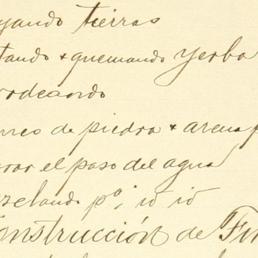 yando tierras
tando + quemando yerba
rodeando
rreo de piedra + arena p
rar el paso del agua
zelando pº, id id
onstrucción de Fin